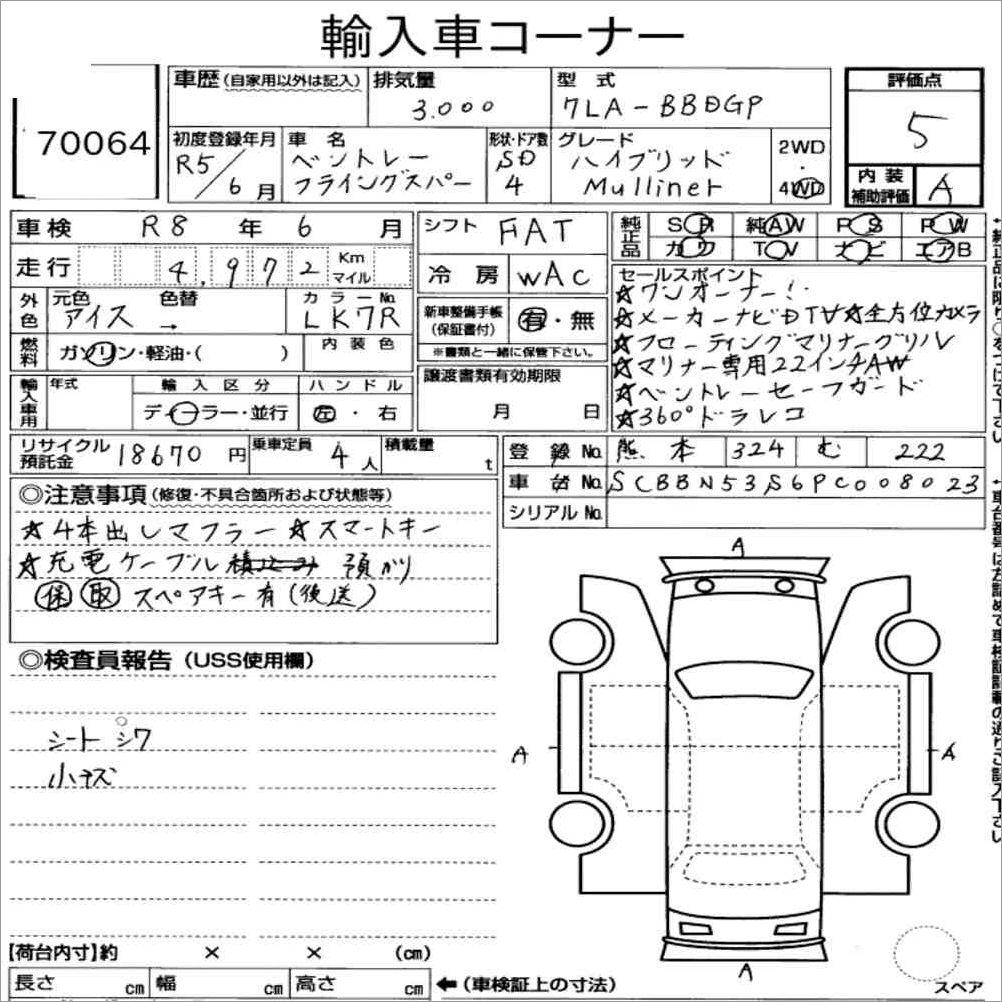 輸入車コーナー
70064
車歴(自家用以外は記入) 排気量 型式 評価点
3.000 7LA-BBDGP 5
初度登録年月 車名 形状・ドア数 グレード 2WD
R5/6月 ベントレー SD ハイブリッド ・
フライングスパー 4 Mulliner 4WD
内装補助評価 A
車検 R8年 6月 シフト FAT 純正品 SR 純AW PS PW
カワ TV ナビ エアB
走行 4,972 Km マイル 冷房 WAC
セールスポイント
☆ワンオーナー!
☆メーカーナビDTV☆全方位カメラ
☆フローティングマリナーグリル
☆マリナー専用22インチAW
☆ベントレーセーフガード
☆360°ドラレコ
外色 元色 色替 カラーNo.
アイス → LK7R
新車整備手帳(保証書付) 有・無
※書類と一緒に保管下さい。
燃料 ガソリン・軽油・( ) 内装色
譲渡書類有効期限
月 日
輸入車用 年式 輸入区分 ハンドル
ディーラー・並行 左・右
リサイクル預託金 18670円 乗車定員 4人 積載量 t
登録No. 熊本 324 む 222
車台No. SCBBN53S6PC008023
シリアルNo.
◎注意事項(修復・不具合箇所および状態等)
☆4本出しマフラー☆スマートキー
☆充電ケーブル 預かり
保 取 スペアキー有(後送)
◎検査員報告(USS使用欄)
シートシワ
小キズ
A
A
A
A
【荷台内寸】約 × × (cm)
長さ cm 幅 cm 高さ cm ←(車検証上の寸法)
スペア